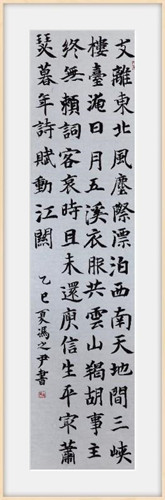 支離東北風塵際漂泊西南天地間三峽
樓臺淹日月五溪衣服共雲山羯胡事主
終無賴詞客哀時且未還庾信生平㝡蕭
瑟暮年詩賦動江關
乙巳夏馮之尹書